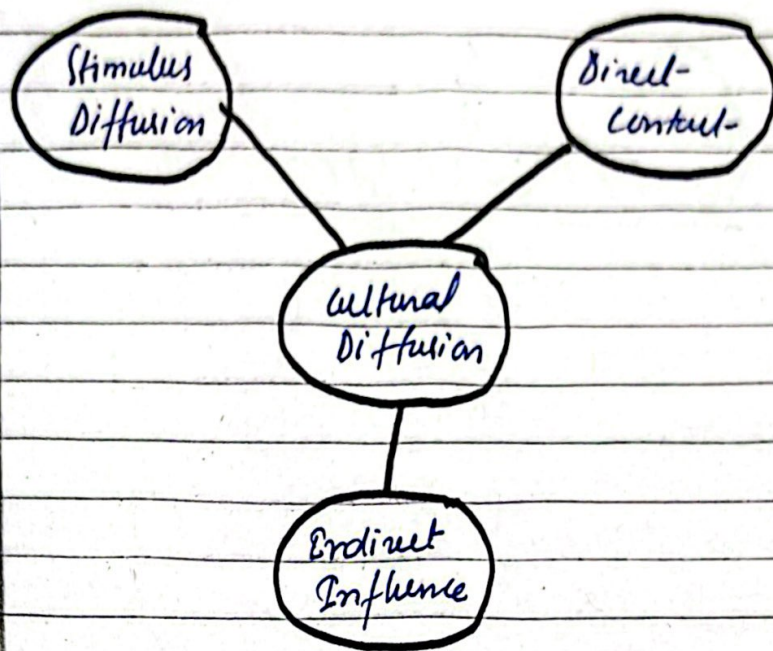 Stimulus
Diffusion
Direct
Contact
Cultural
Diffusion
Indirect
Influence